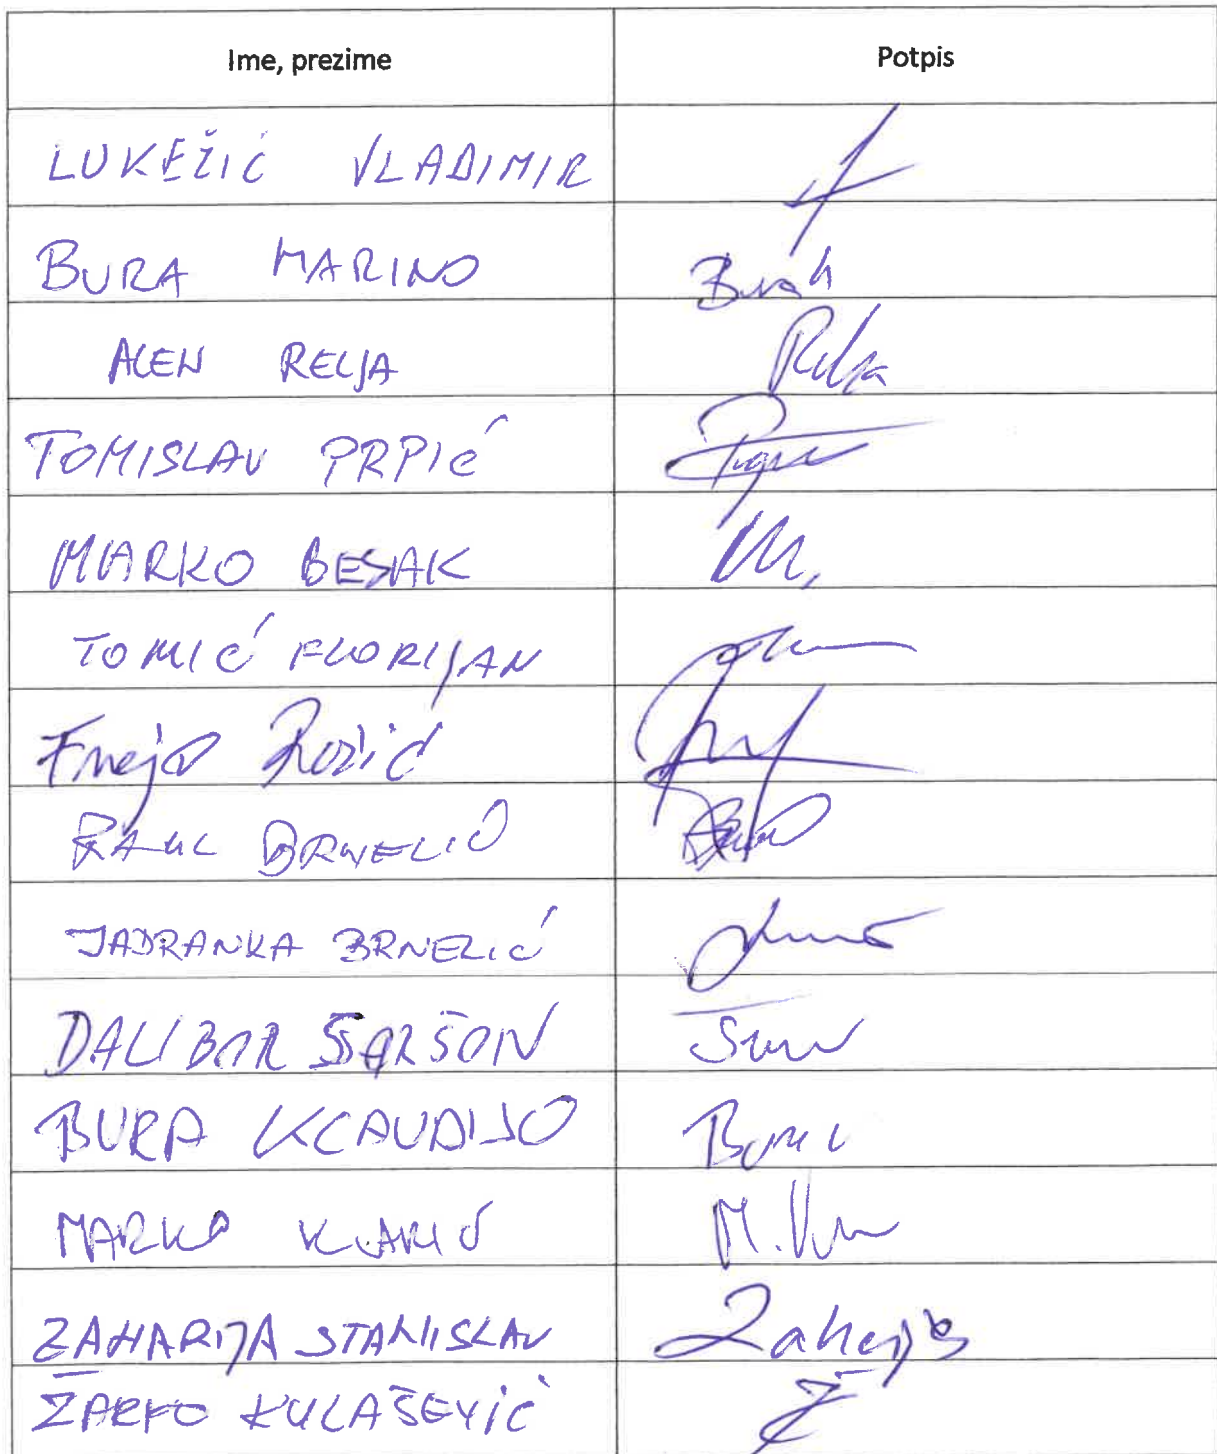 Ime, prezime Potpis
LUKEŽIĆ VLADIMIR
BURA MARINO Bura
ALEN RELJA Relja
TOMISLAV PRPIĆ
MARKO BESAK
TOMIĆ FLORIJAN
Rožić
RAUL BRNELIĆ
JADRANKA BRNELIĆ
DALIBOR ŠARŠON
BURA KLAUDIJO
MARKO KLARIĆ
ZAHARIJA STANISLAV Zaharija
ŽARKO KULAŠEVIĆ